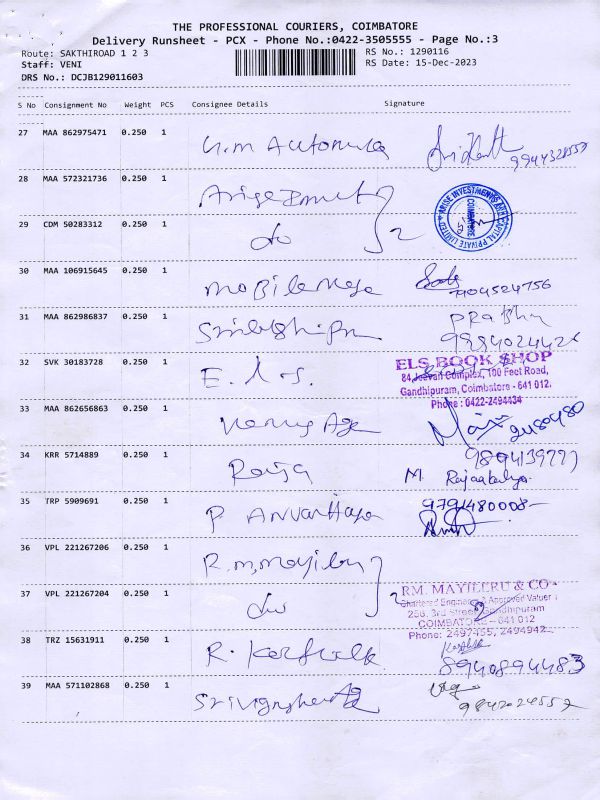 THE PROFESSIONAL COURIERS, COIMBATORE
Delivery Runsheet - PCX - Phone No.:0422-3505555 - Page No.:3
Route: SAKTHIROAD 1 2 3 RS No.: 1290116
Staff: VENI RS Date: 15-Dec-2023
DRS No.: DCJB129011603
S No Consignment No Weight PCS Consignee Details Signature
27 MAA 862975471 0.250 1
28 MAA 572321736 0.250 1 Arise
ARISE INVESTMENTS AND CAPITAL PRIVATE LIMITED
COIMBATORE
29 CDM 50283312 0.250 1 do 2
30 MAA 106915645 0.250 1 9904524756
31 MAA 862986837 0.250 1 Prabhu
32 SVK 30183728 0.250 1 E.L.S. ELS BOOK SHOP
84, Jeevan Complex, 100 Feet Road,
Gandhipuram, Coimbatore - 641 012.
Phone : 0422-2494434
33 MAA 862656863 0.250 1
34 KRR 5714889 0.250 1 Raja M.
35 TRP 5909691 0.250 1 P 9791480008
36 VPL 221267206 0.250 1 R.m.
37 VPL 221267204 0.250 1 do 2 RM. MAYILERU & CO
Chartered Engineer & Approved Valuer
256, 3rd Street, Gandhipuram
COIMBATORE - 641 012
Phone: 2497455, 2494942
38 TRZ 15631911 0.250 1 R. 8940894483
39 MAA 571102868 0.250 1 9842024552